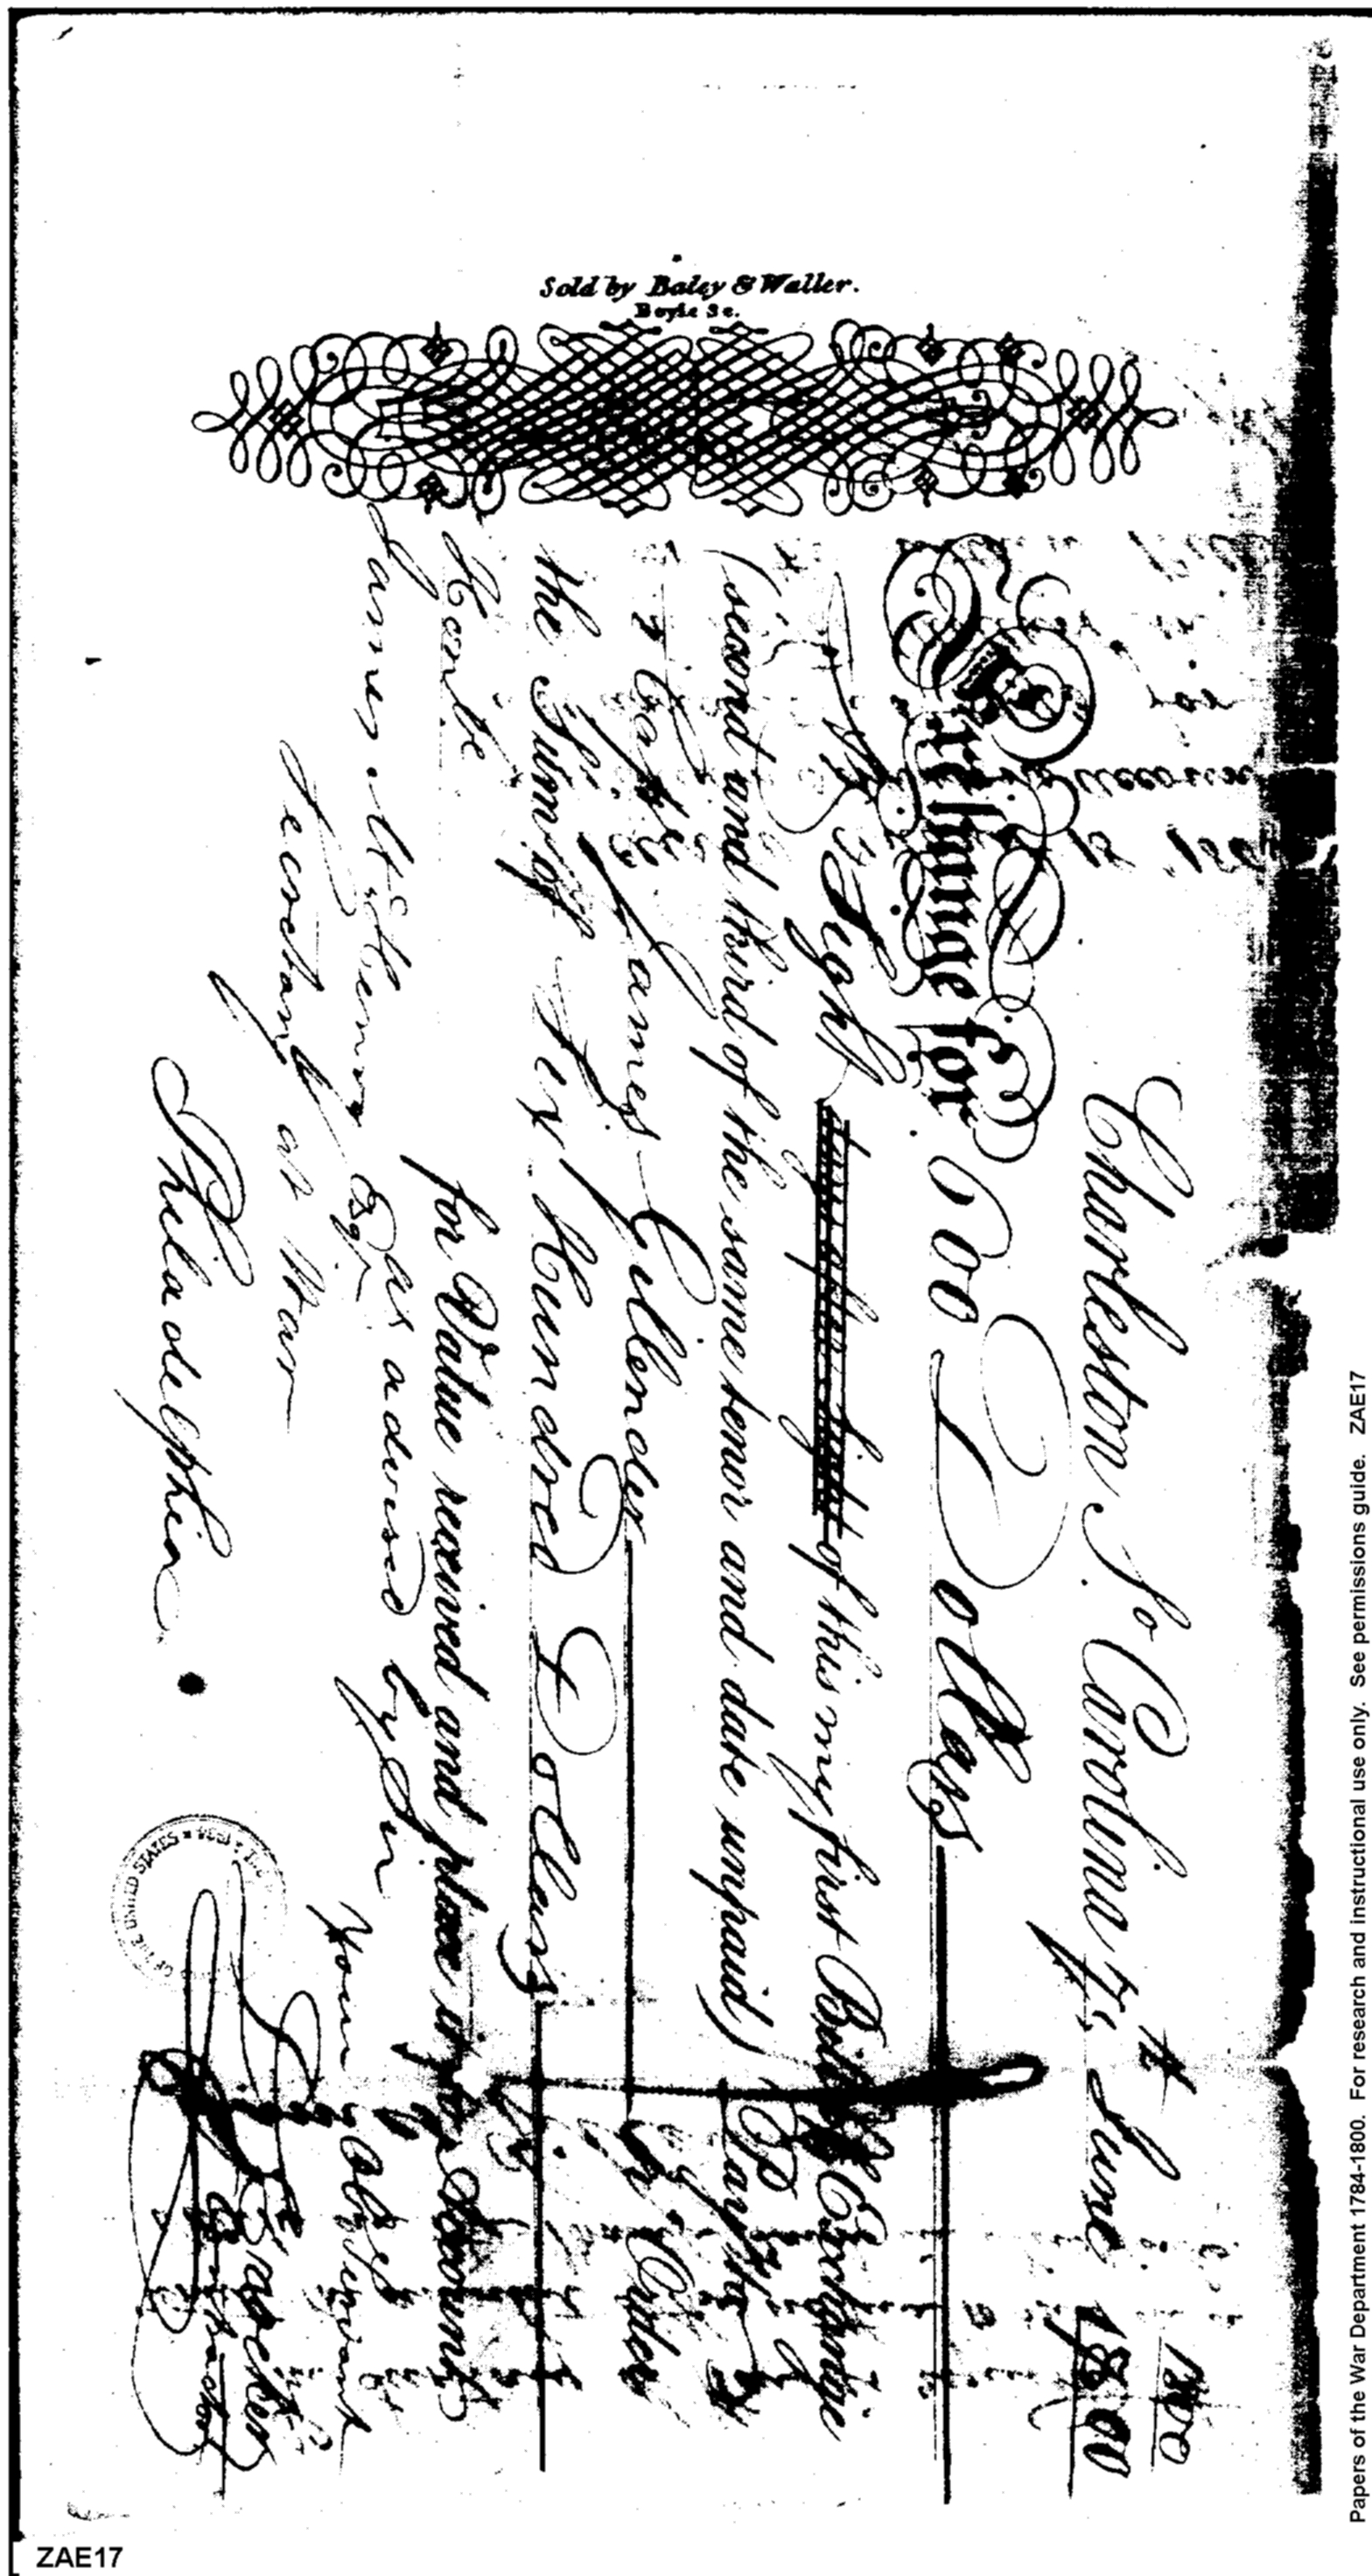 Sold by Baley & Waller.
Charleston So Carolina 4th June 1800
Exchange for 600 Dollars
At Sight days after Sight of this my first Bill of Exchange
(second and third of the same tenor and date unpaid) Pay to
Capt James Gillender or Order
the Sum of Six Hundred Dollars
for Value received and place it to Account
as advised by Sir
Your Obed Servant
Honble
James McHenry Esqr
Secretary at War
Philadelphia
OF THE UNITED STATES
Papers of the War Department 1784-1800. For research and instructional use only. See permissions guide. ZAE17
ZAE17